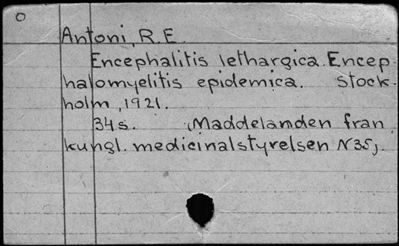 Antoni, R.E.
Encephalitis lethargica. Encep-
halomyelitis epidemica. Stock-
holm, 1921.
34s. (Maddelanden fran
kungl. medicinalstyrelsen N35).